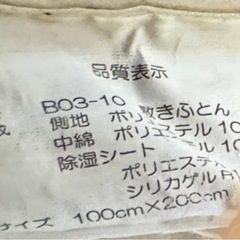 品質表示
B03-10
側地 ポリ敷きふとん
中綿 ポリエステル 10
除湿シート テル 10
ポリエステル
シリカゲル
サイズ 100cm×200cm